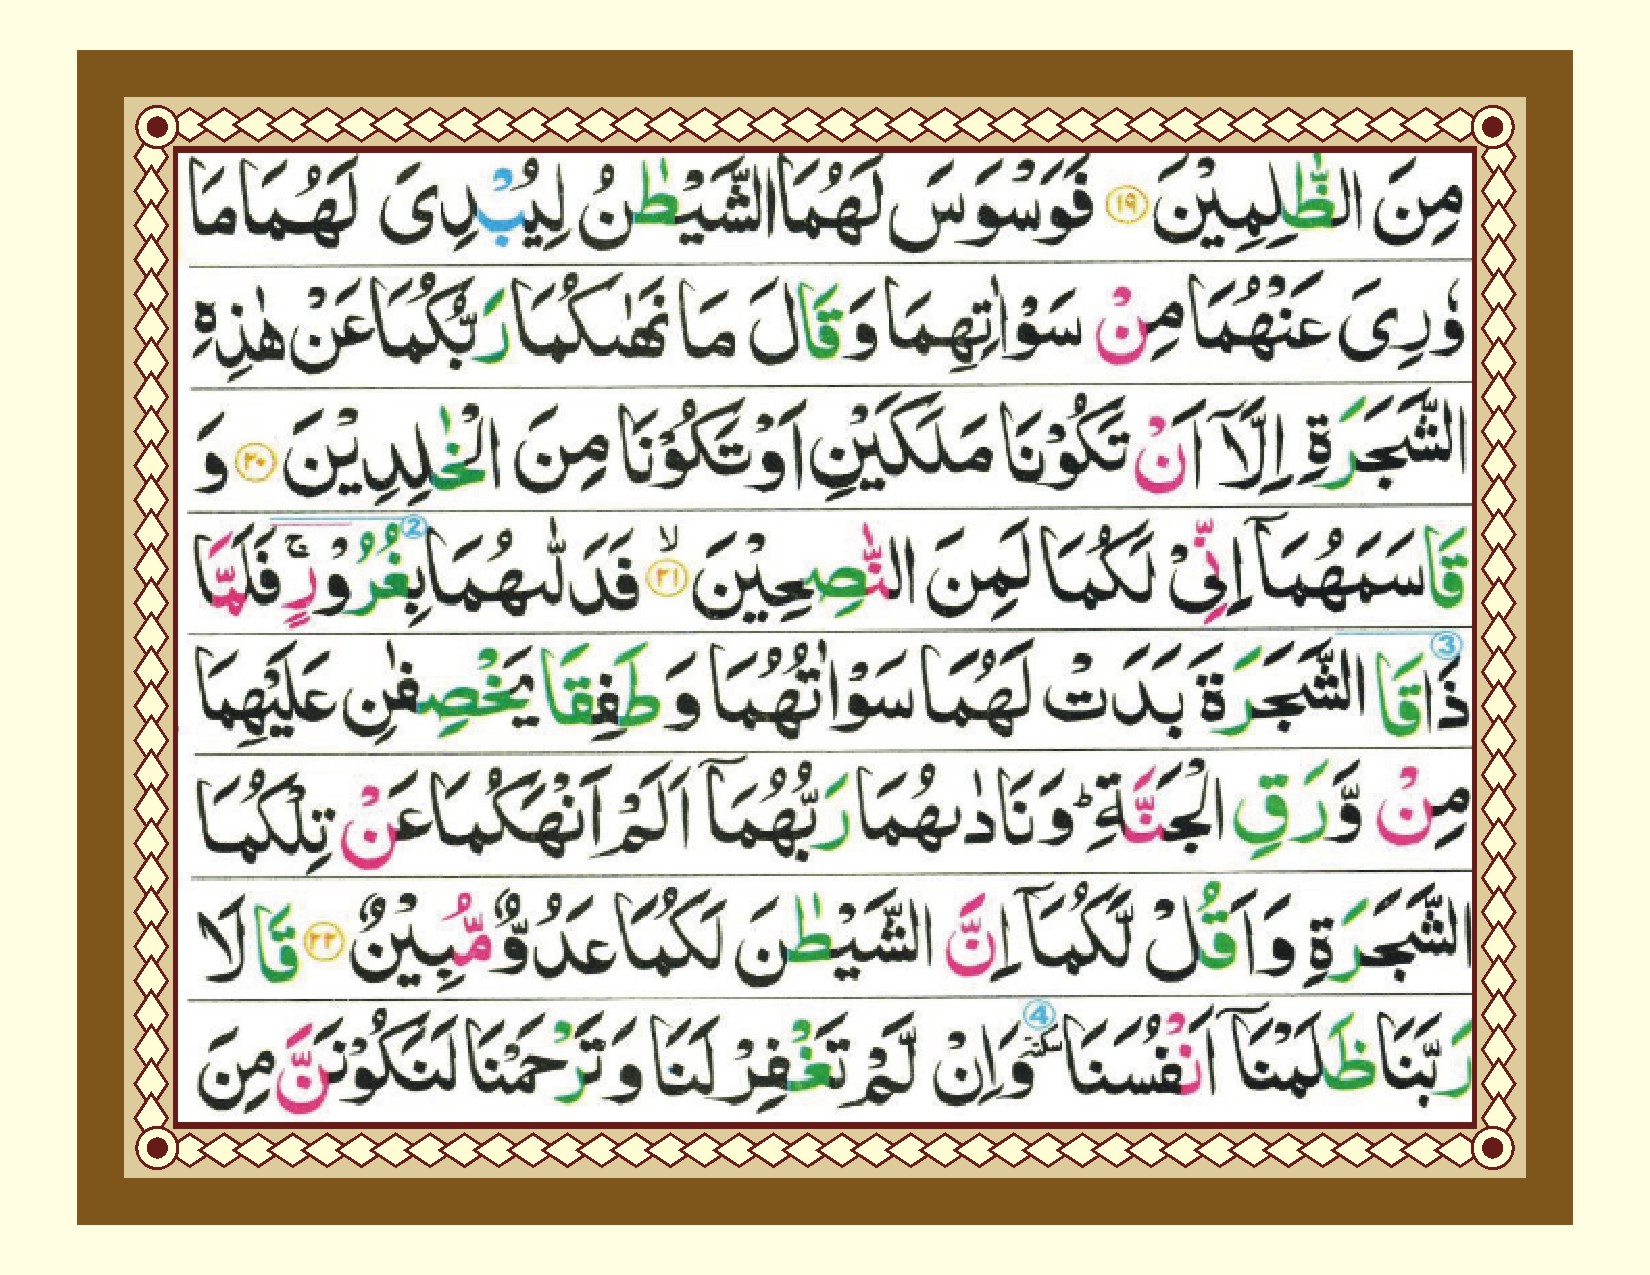 مِنَ الظّٰلِمِيْنَ ۱۹ فَوَسْوَسَ لَهُمَا الشَّيْطٰنُ لِيُبْدِىَ لَهُمَا مَا
وٗرِىَ عَنْهُمَا مِنْ سَوْاٰتِهِمَا وَقَالَ مَا نَهٰىكُمَا رَبُّكُمَا عَنْ هٰذِهِ
الشَّجَرَةِ اِلَّاۤ اَنْ تَكُوْنَا مَلَكَيْنِ اَوْ تَكُوْنَا مِنَ الْخٰلِدِيْنَ ۲۰ وَ
قَاسَمَهُمَاۤ اِنِّىْ لَكُمَا لَمِنَ النّٰصِحِيْنَ ۙ ۲۱ فَدَلّٰىهُمَا بِغُرُوْرٍ ۚ فَلَمَّا ②
ذَاقَا الشَّجَرَةَ بَدَتْ لَهُمَا سَوْاٰتُهُمَا وَطَفِقَا يَخْصِفٰنِ عَلَيْهِمَا ③
مِنْ وَّرَقِ الْجَنَّةِ ؕ وَنَادٰىهُمَا رَبُّهُمَاۤ اَلَمْ اَنْهَكُمَا عَنْ تِلْكُمَا
الشَّجَرَةِ وَاَقُلْ لَّكُمَاۤ اِنَّ الشَّيْطٰنَ لَكُمَا عَدُوٌّ مُّبِيْنٌ ۲۲ قَالَا
رَبَّنَا ظَلَمْنَاۤ اَنْفُسَنَا سكتة ④ وَاِنْ لَّمْ تَغْفِرْ لَنَا وَتَرْحَمْنَا لَنَكُوْنَنَّ مِنَ